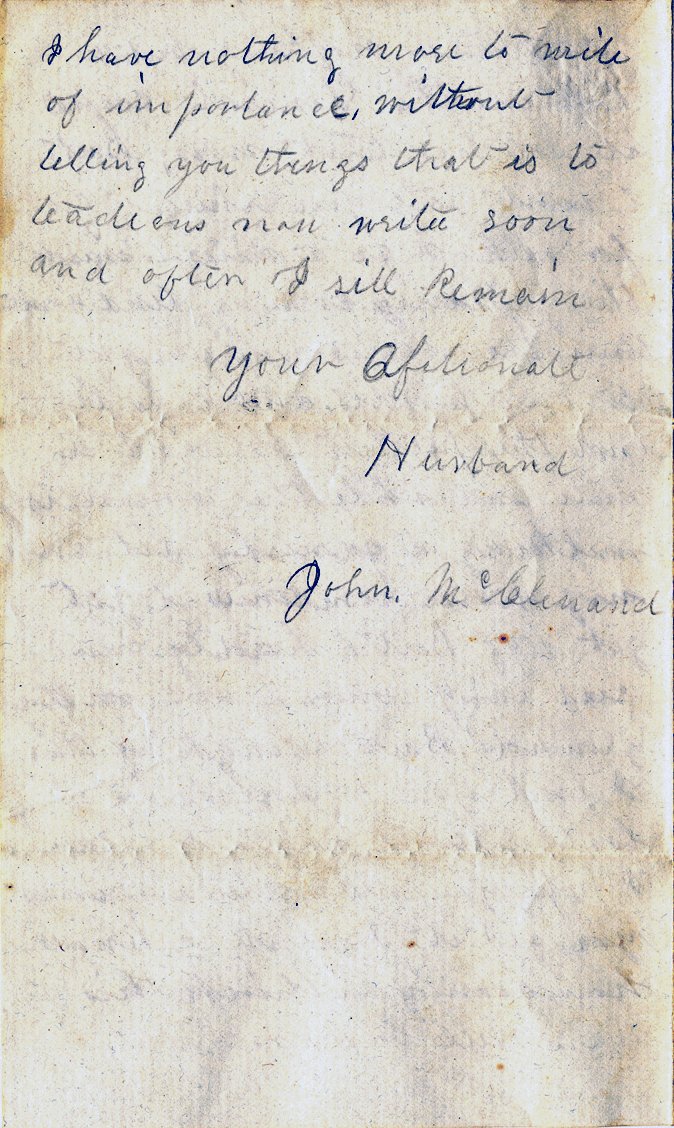 I have nothing more to write
of importance, without
telling you things that is to
teadeous now write soon
and often I still Remain
Your Afectionate
Husband
John. McClenand